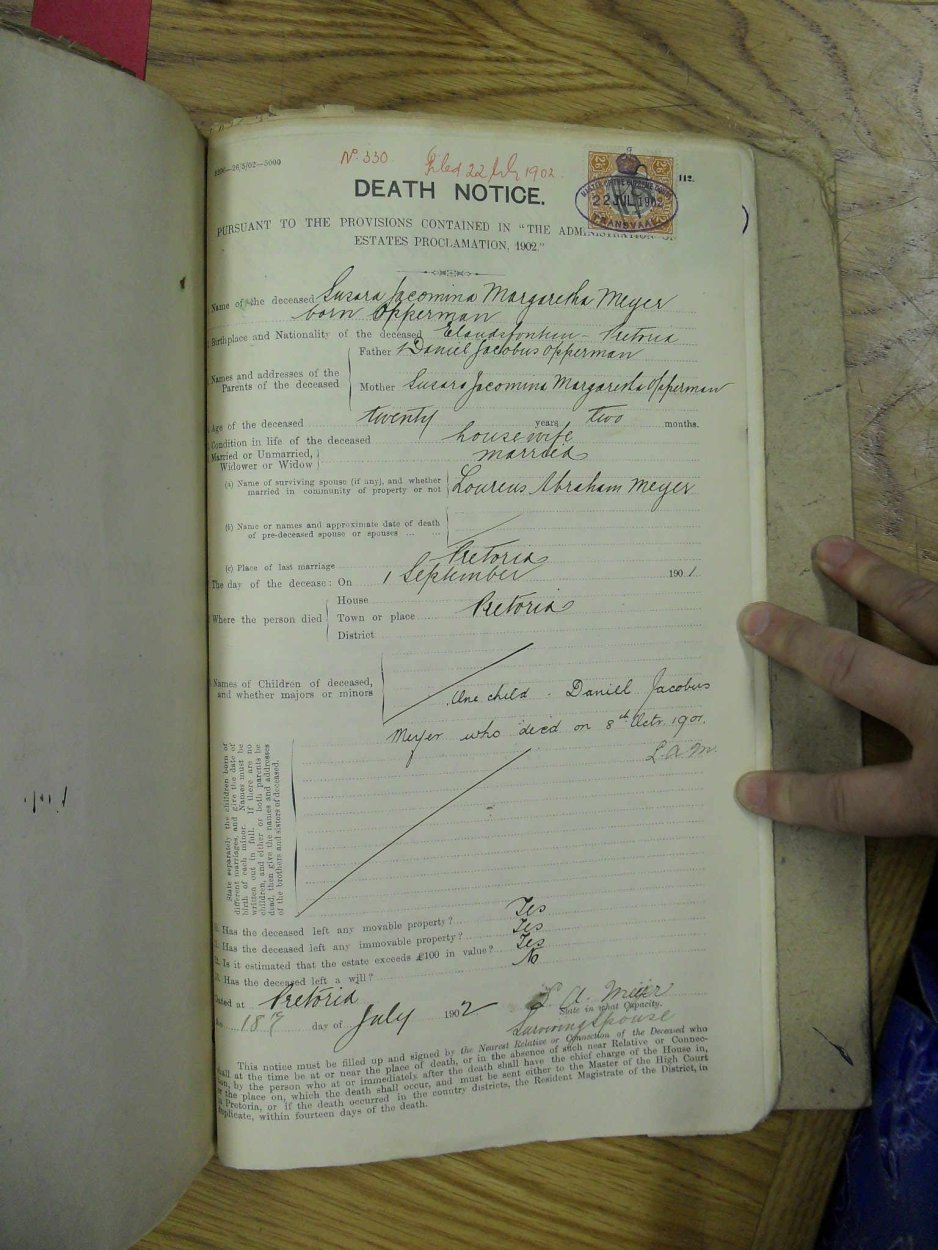 No. 330. Filed 22 July 1902.
112.
DEATH NOTICE.
22 JUL 1902
TRANSVAAL
PURSUANT TO THE PROVISIONS CONTAINED IN "THE ADMINISTRATION OF
ESTATES PROCLAMATION, 1902."
Name of the deceased Susara Jacomina Margaretha Meyer
born Opperman
Birthplace and Nationality of the deceased Elandsfontein - Pretoria
Names and addresses of the Parents of the deceased
Father Daniel Jacobus Opperman
Mother Susara Jacomina Margaretha Opperman
Age of the deceased twenty years two months.
Condition in life of the deceased housewife
Married or Unmarried, Widower or Widow married
(a) Name of surviving spouse (if any), and whether married in community of property or not Lourens Abraham Meyer
(b) Name or names and approximate date of death
of pre-deceased spouse or spouses ... ...
(c) Place of last marriage Pretoria
The day of the decease: On 1 September 1901
Where the person died
House
Town or place Pretoria
District
Names of Children of deceased,
and whether majors or minors
One child - Daniel Jacobus
Meyer who died on 8th Octr. 1901.
L.A.M.
State separately the children born of
different marriages, and give the date of
birth of each minor. Names must be
written out in full. If there are no
children, and either or both parents be
dead, then give the names and addresses
of the brothers and sisters of deceased.
Has the deceased left any movable property? Yes
Has the deceased left any immovable property? Yes
Is it estimated that the estate exceeds £100 in value? Yes
Has the deceased left a will? No
Dated at Pretoria
18 day of July 1902
L. A. Meyer
State in what Capacity.
Surviving Spouse
This notice must be filled up and signed by the Nearest Relative or Connection of the Deceased who
shall at the time be at or near the place of death, or in the absence of such near Relative or Connec-
tion, by the person who at or immediately after the death shall have the chief charge of the House in,
or the place on, which the death shall occur, and must be sent either to the Master of the High Court
in Pretoria, or if the death occurred in the country districts, the Resident Magistrate of the District, in
duplicate, within fourteen days of the death.